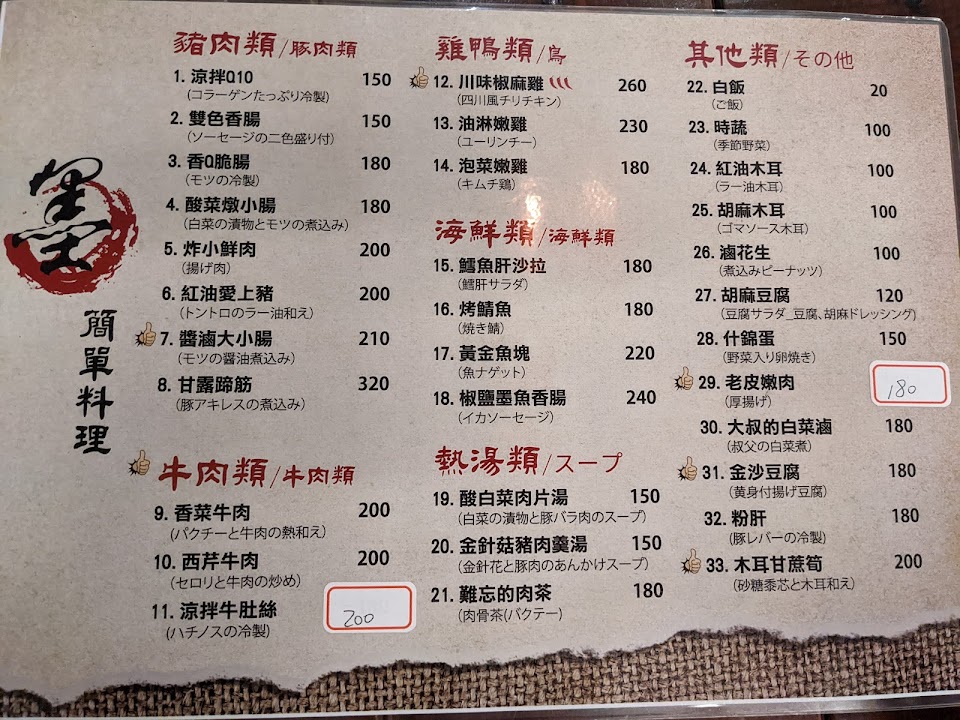 墨
簡單料理
豬肉類/豚肉類
1. 涼拌Q10 150
(コラーゲンたっぷり冷製)
2. 雙色香腸 150
(ソーセージの二色盛り付)
3. 香Q脆腸 180
(モツの冷製)
4. 酸菜燉小腸 180
(白菜の漬物とモツの煮込み)
5. 炸小鮮肉 200
(揚げ肉)
6. 紅油愛上豬 200
(トントロのラー油和え)
7. 醬滷大小腸 210
(モツの醤油煮込み)
8. 甘露蹄筋 320
(豚アキレスの煮込み)
牛肉類/牛肉類
9. 香菜牛肉 200
(パクチーと牛肉の熱和え)
10. 西芹牛肉 200
(セロリと牛肉の炒め)
11. 涼拌牛肚絲 200
(ハチノスの冷製)
雞鴨類/鳥
12. 川味椒麻雞 260
(四川風チリチキン)
13. 油淋嫩雞 230
(ユーリンチー)
14. 泡菜嫩雞 180
(キムチ鶏)
海鮮類/海鮮類
15. 鱈魚肝沙拉 180
(鱈肝サラダ)
16. 烤鯖魚 180
(焼き鯖)
17. 黃金魚塊 220
(魚ナゲット)
18. 椒鹽墨魚香腸 240
(イカソーセージ)
熱湯類/スープ
19. 酸白菜肉片湯 150
(白菜の漬物と豚バラ肉のスープ)
20. 金針菇豬肉羹湯 150
(金針花と豚肉のあんかけスープ)
21. 難忘的肉茶 180
(肉骨茶(パクテー)
其他類/その他
22. 白飯 20
(ご飯)
23. 時蔬 100
(季節野菜)
24. 紅油木耳 100
(ラー油木耳)
25. 胡麻木耳 100
(ゴマソース木耳)
26. 滷花生 100
(煮込みピーナッツ)
27. 胡麻豆腐 120
(豆腐サラダ_豆腐、胡麻ドレッシング)
28. 什錦蛋 150
(野菜入り卵焼き)
29. 老皮嫩肉 180
(厚揚げ)
30. 大叔的白菜滷 180
(叔父の白菜煮)
31. 金沙豆腐 180
(黄身付揚げ豆腐)
32. 粉肝 180
(豚レバーの冷製)
33. 木耳甘蔗筍 200
(砂糖黍芯と木耳和え)